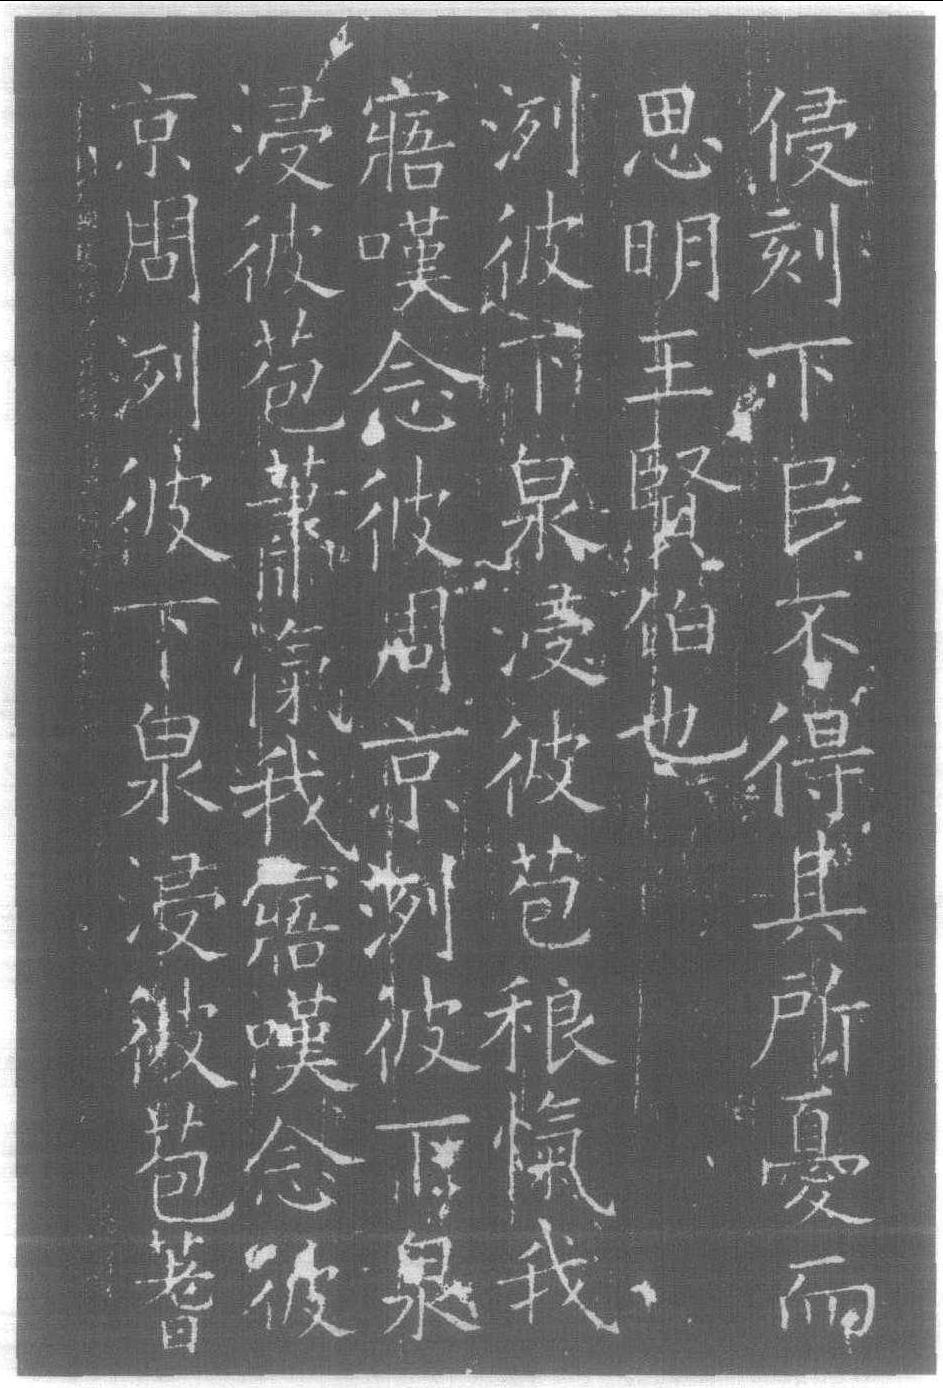 侵刻下民不得其所憂而
思明王賢伯也
洌彼下泉浸彼苞稂愾我
寤嘆念彼周京洌彼下泉
浸彼苞蕭愾我寤嘆念彼
京周洌彼下泉浸彼苞蓍